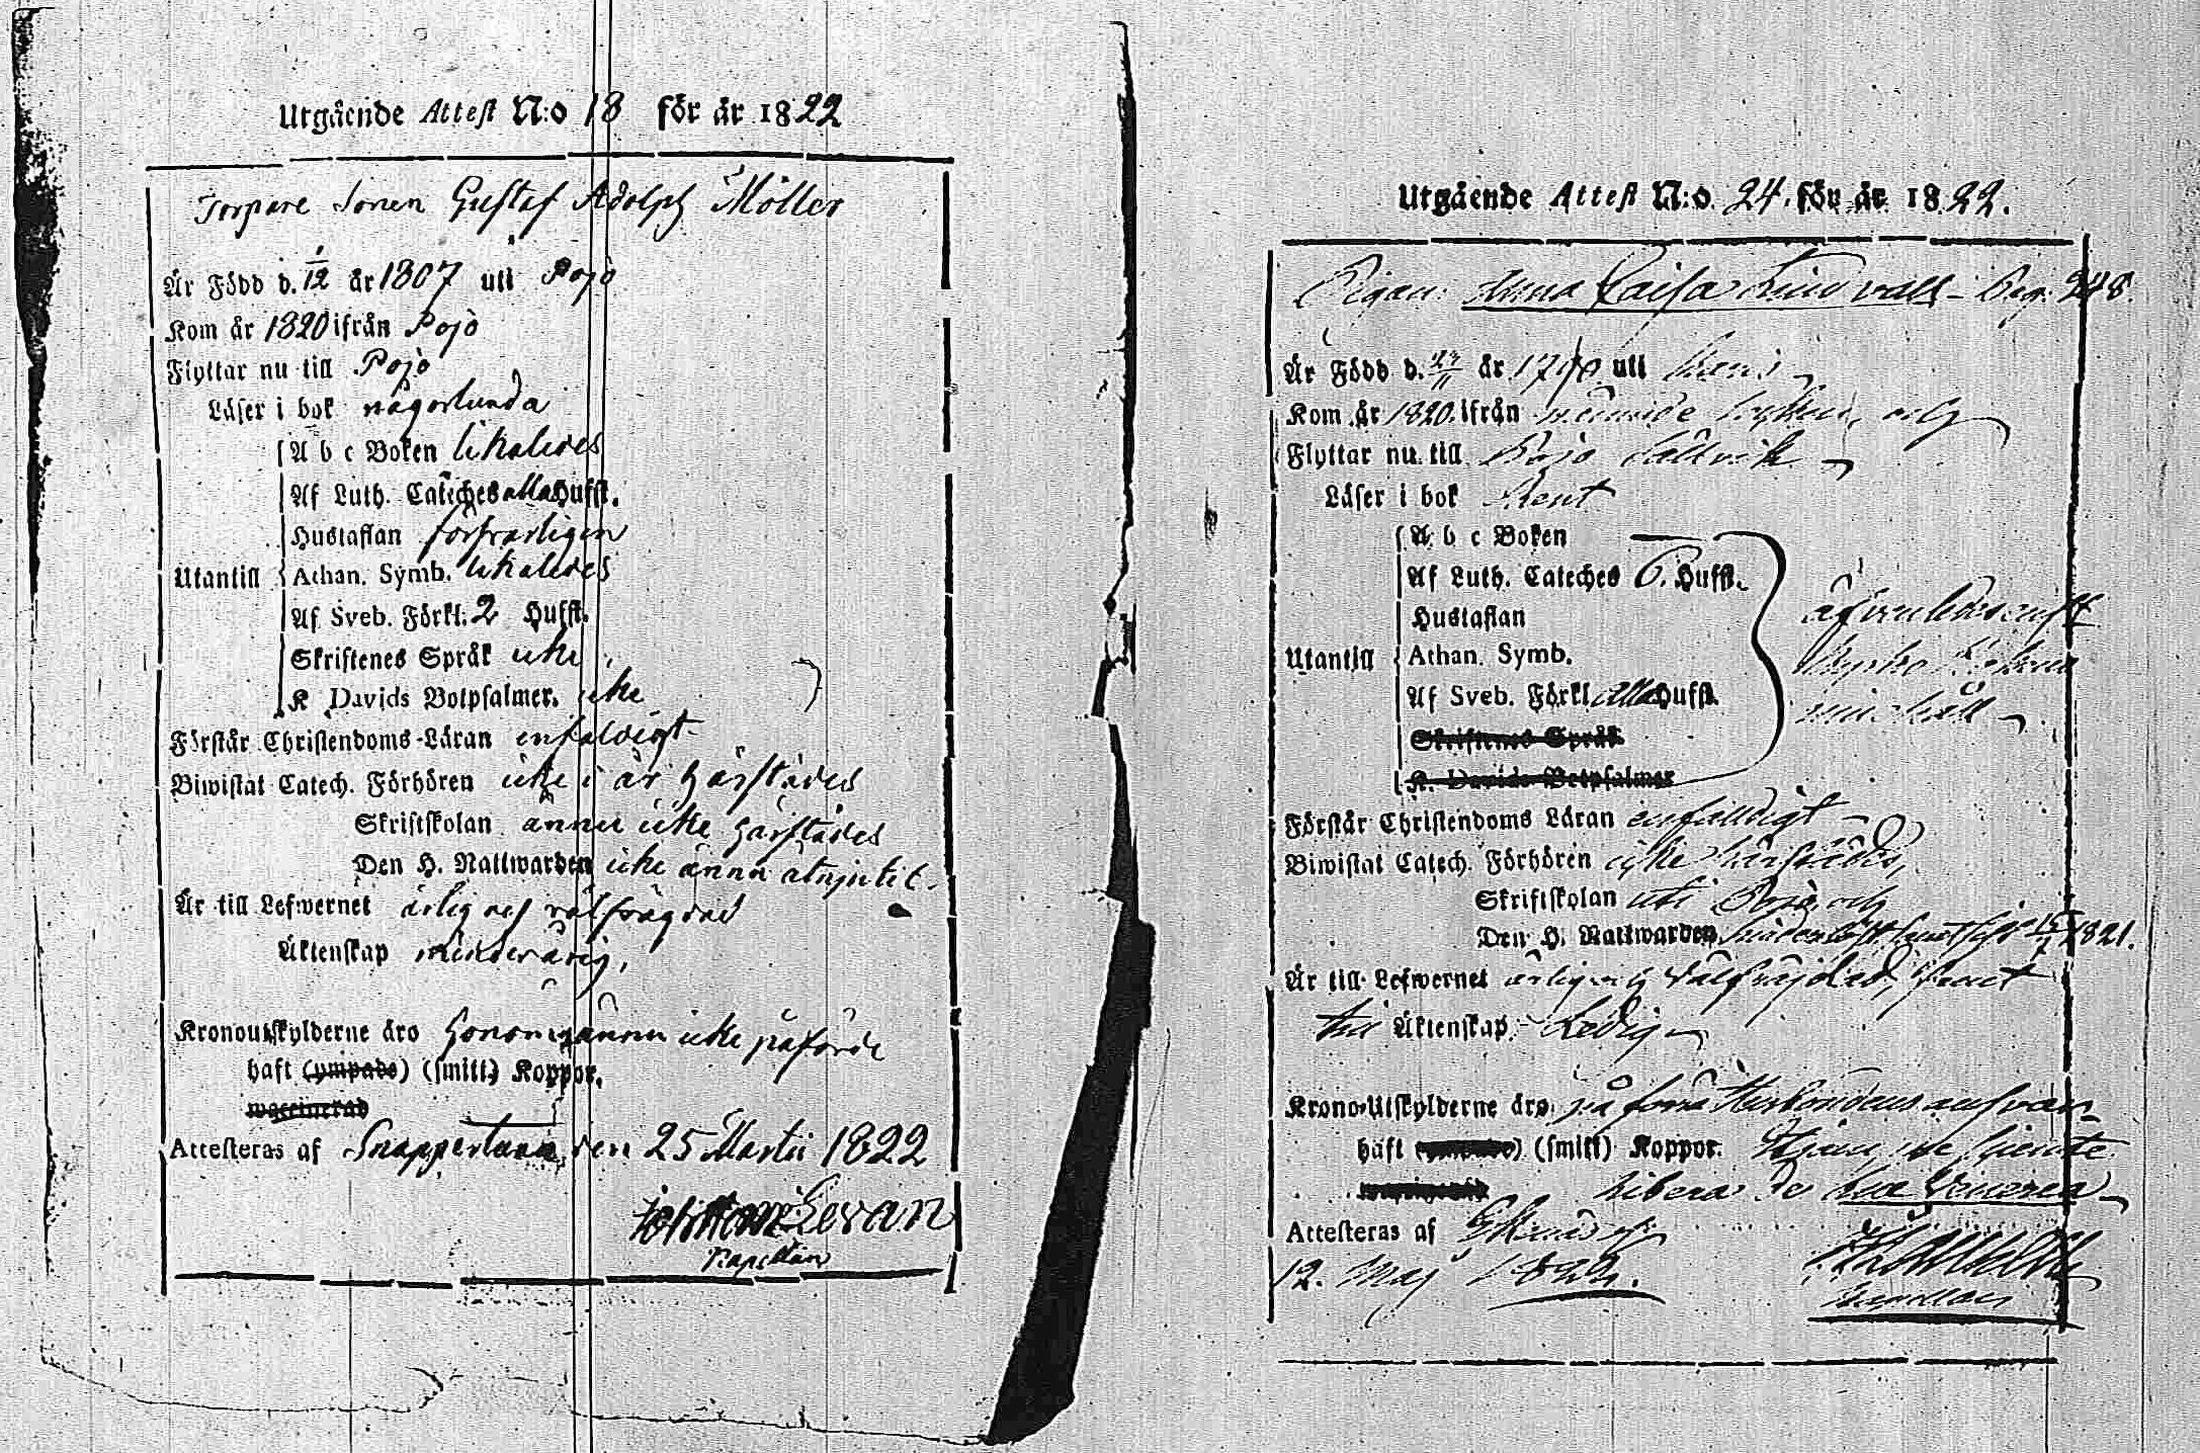 Utgående Attest N:o 18 för år 1822
Torpare Sonen Gustaf Adolph Möller
Är Född d. 1/12 år 1807 uti Pojo
Kom år 1820 ifrån Pojo
Flyttar nu till Pojo
Läser i bok någorlunda
A b c Boken likaledes
Af Luth. Catéches alla Hufst.
Hustaflan försvarligen
Utantill Athan. Symb. likaledes
Af Sveb. Förkl. 2 Hufst.
Skriftenes Språk icke
K Davids Botpsalmer. icke
Förstår Christendoms-Läran enfaldigt
Biwistat Catech. Förhören icke i år härstädes
Skriftskolan ännu icke härstädes
Den H. Nattwarden icke ännu atnjutit.
Är till Lefwernet ärlig och välfrägdad
Äktenskap minderårig,
Kronoutskylderne äro honom ännu icke påförde
haft (ympade) (smitt) Koppor.
waccinerad
Attesteras af Snappertuna den 25 Martii 1822
Levan
Kapellan
Utgående Attest N:o. 24. för år 1822.
Pigan Anna Caisa Lindvall - Pag. 248.
Är Född d. 23/11 år 1790 uti
Kom år 1820. ifrån och
Flyttar nu till Pojo
Läser i bok Rent
A b c Boken
Af Luth. Cateches 6. Hufst.
Hustaflan
Utantill Athan. Symb.
Af Sveb. Förkl. alla Hufst.
Skriftenes Språk
K. Davids Botpsalmer
Förstår Christendoms Läran enfalldigt
Biwistat Catech. Förhören icke härstädes,
Skriftskolan uti Pojo och
Den H. Nattwarden 1821.
Är till Lefwernet ärlig och välfräjdad, samt
till Äktenskap - Ledig
Krono-Utskylderne äro på förra Husbondens answar
haft (ympade) (smitt) Koppor.
waccinerad libera de lue Venerea
Attesteras af
12. Maj 1822.
Capellan